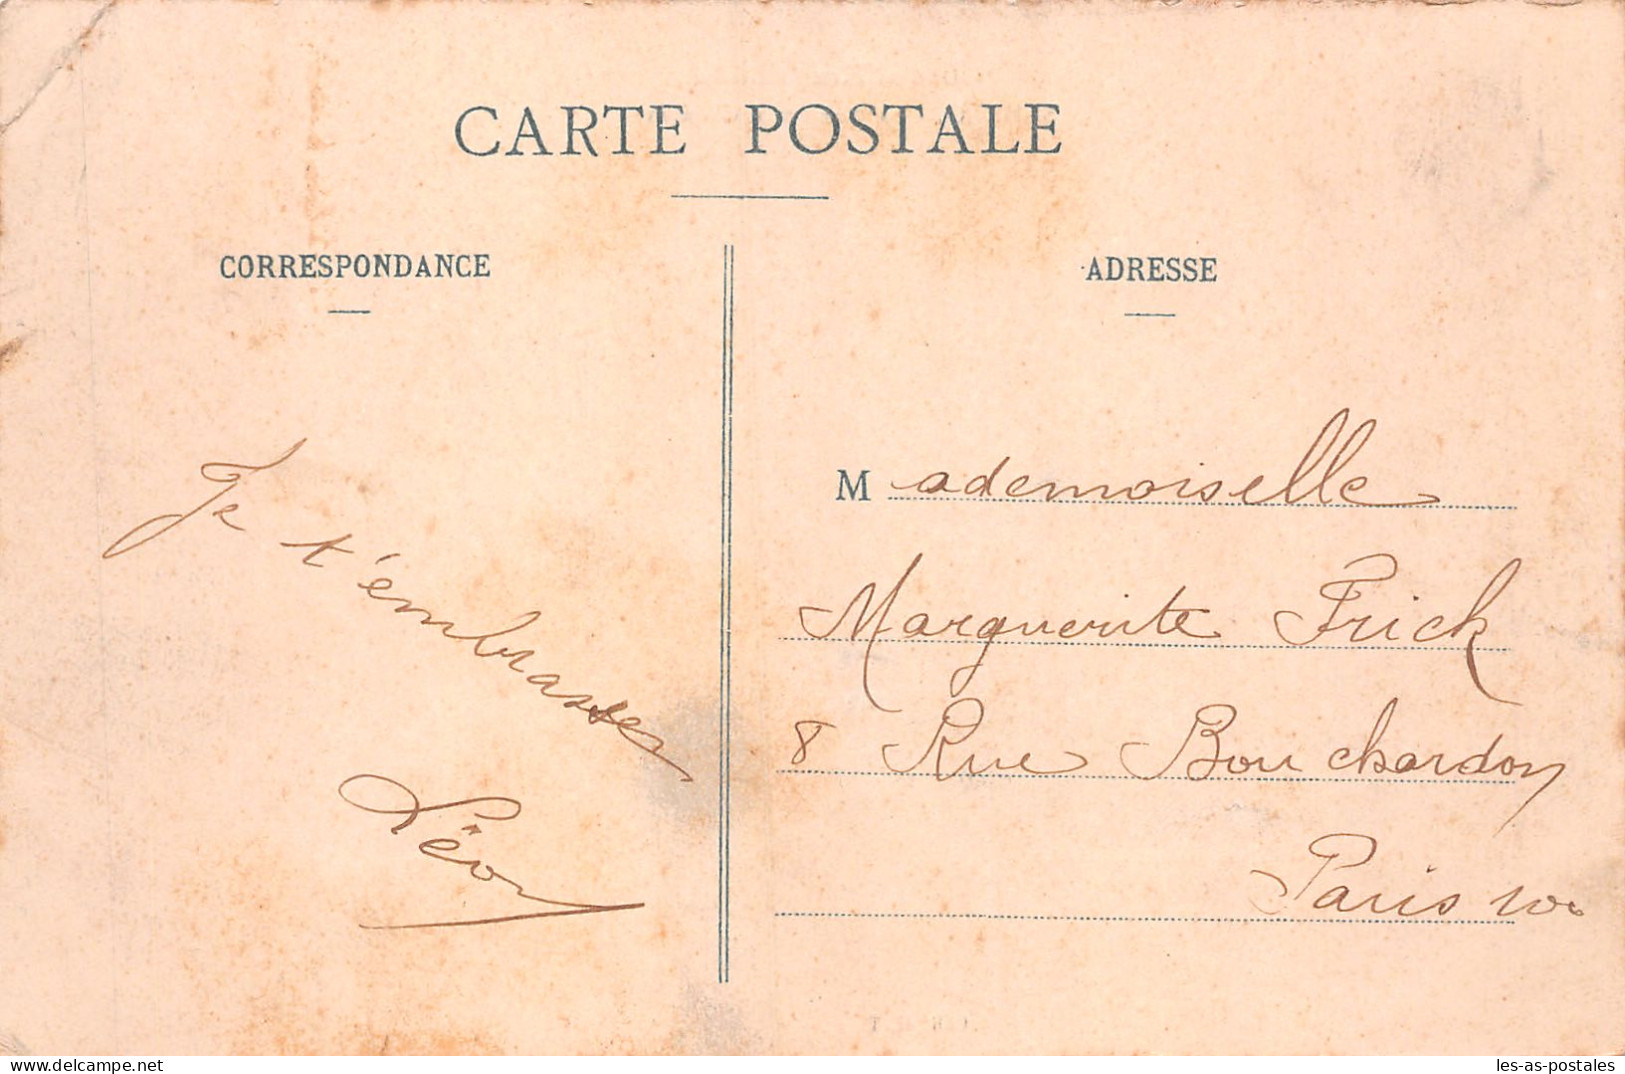 CARTE POSTALE
CORRESPONDANCE
Je t'embrasse
Léon
ADRESSE
Mademoiselle
Marguerite Frick
8 Rue Bouchardon
Paris 10e
les-as-postales